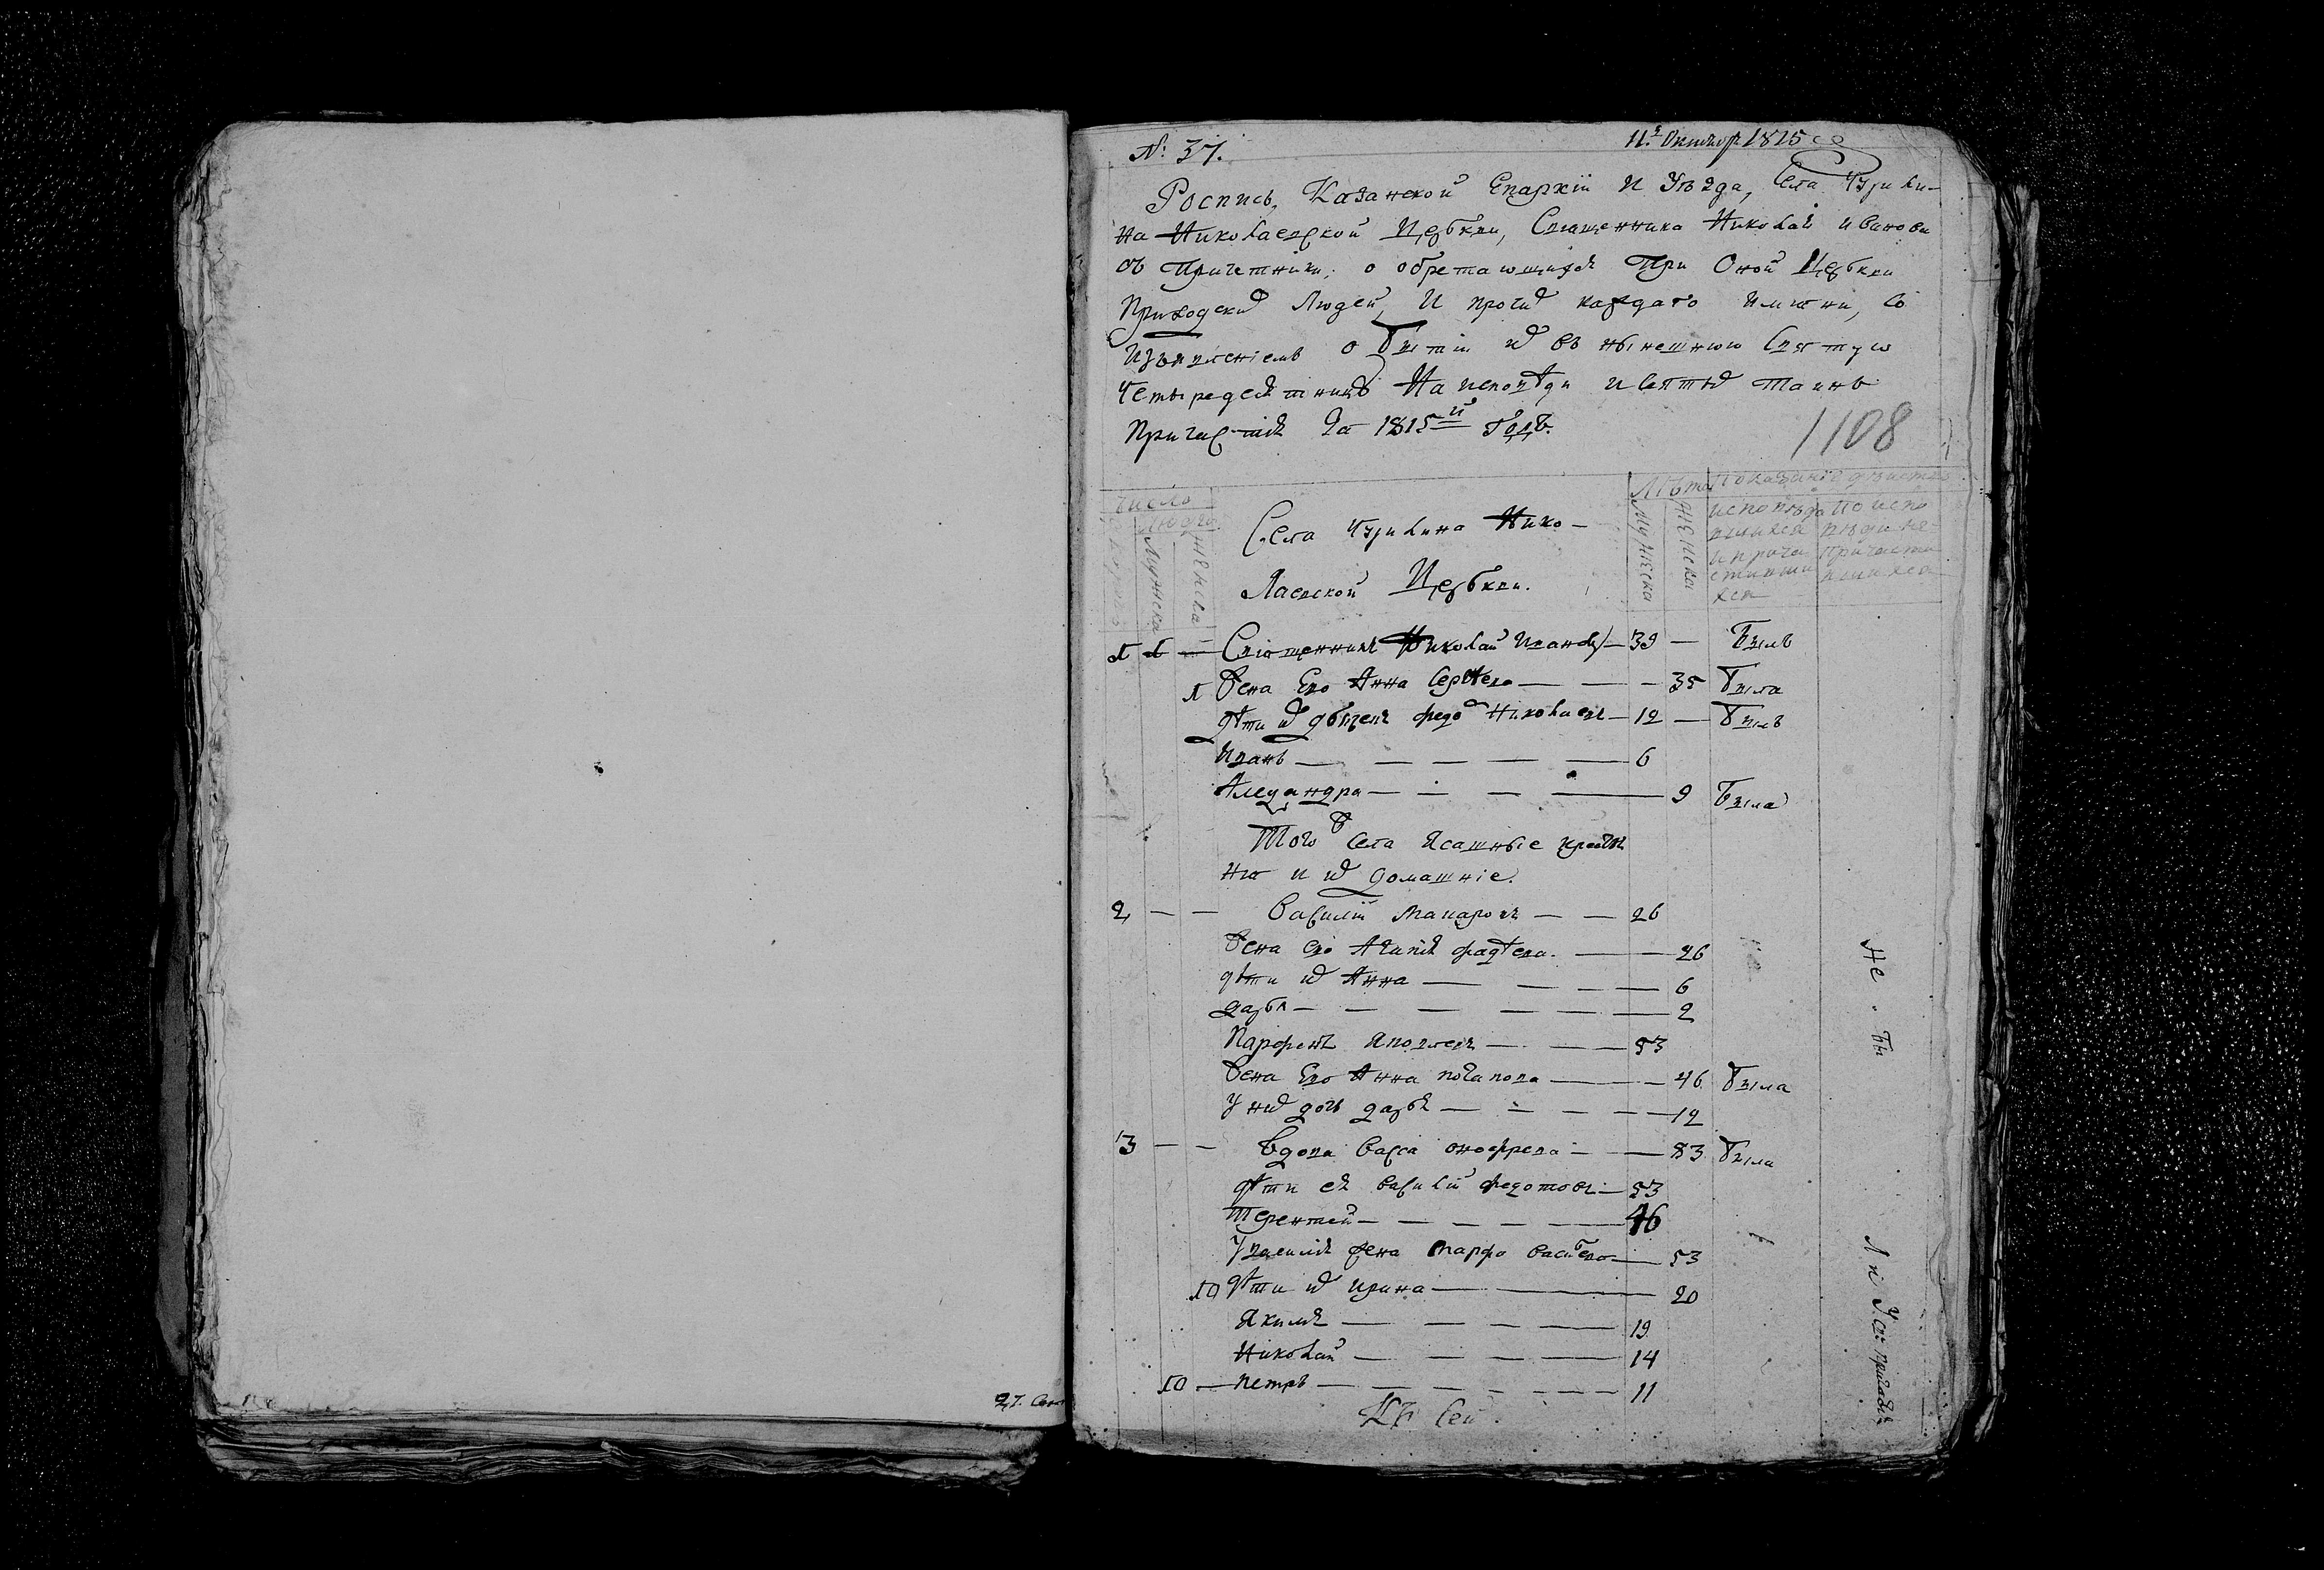 № 37.
11. Октябр 1815
Роспись, Казанской Епархіи И Уѣзда, Села Чурили-
на Николаевской Церкви, Священника Николая иванова
съ Причетники, о обретающихся При Оной Церкви
Приходски Людей, И прочи каждаго имяни, со
Изъявленіемъ о Бытіи их въ нынешнюю Святую
Четыредесятницу На исповѣди и Святых таинъ
Причастія За 1815й Годъ.
1108
Число
Людей
Мужеска
женска
Лѣта
Мужеска
женска
Показаніе
исповѣдо
вшихся
и прича
стивши
хся
По испо
вѣди не
причасти
вшихся
Села Чурилина Нико-
лаевской Церкви.
1 1 — Священникъ Николай Ивановъ — 39 — Былъ
1 Жена Его Анна Сергѣева — 35 Была
дѣти их дьячекъ федо Николаевъ — 12 — Былъ
Иванъ — 6
Александра — 9 Была
Того ж Села Ясашные крестья
не и их домашніе.
2 — — Василій Макаровъ — 26
Жена его Агапія фадѣева — 26
дѣти их Анна — 6
дарья — 2
Парфенъ Яковлевъ — 53
Жена Его Анна потапова — 46 Была
У них дочь дарья — 12
3 — — Вдова Васса онофрева — 83 Была
дѣти ея василий федотовъ — 53
Терентей — 46
У василія жена марфа васильева — 53
10 дѣти их ирина — 20
Якимъ — 19
Николай — 14
10 — петръ — 11
Не бы
ли У с: причастія
Къ Сей
27.